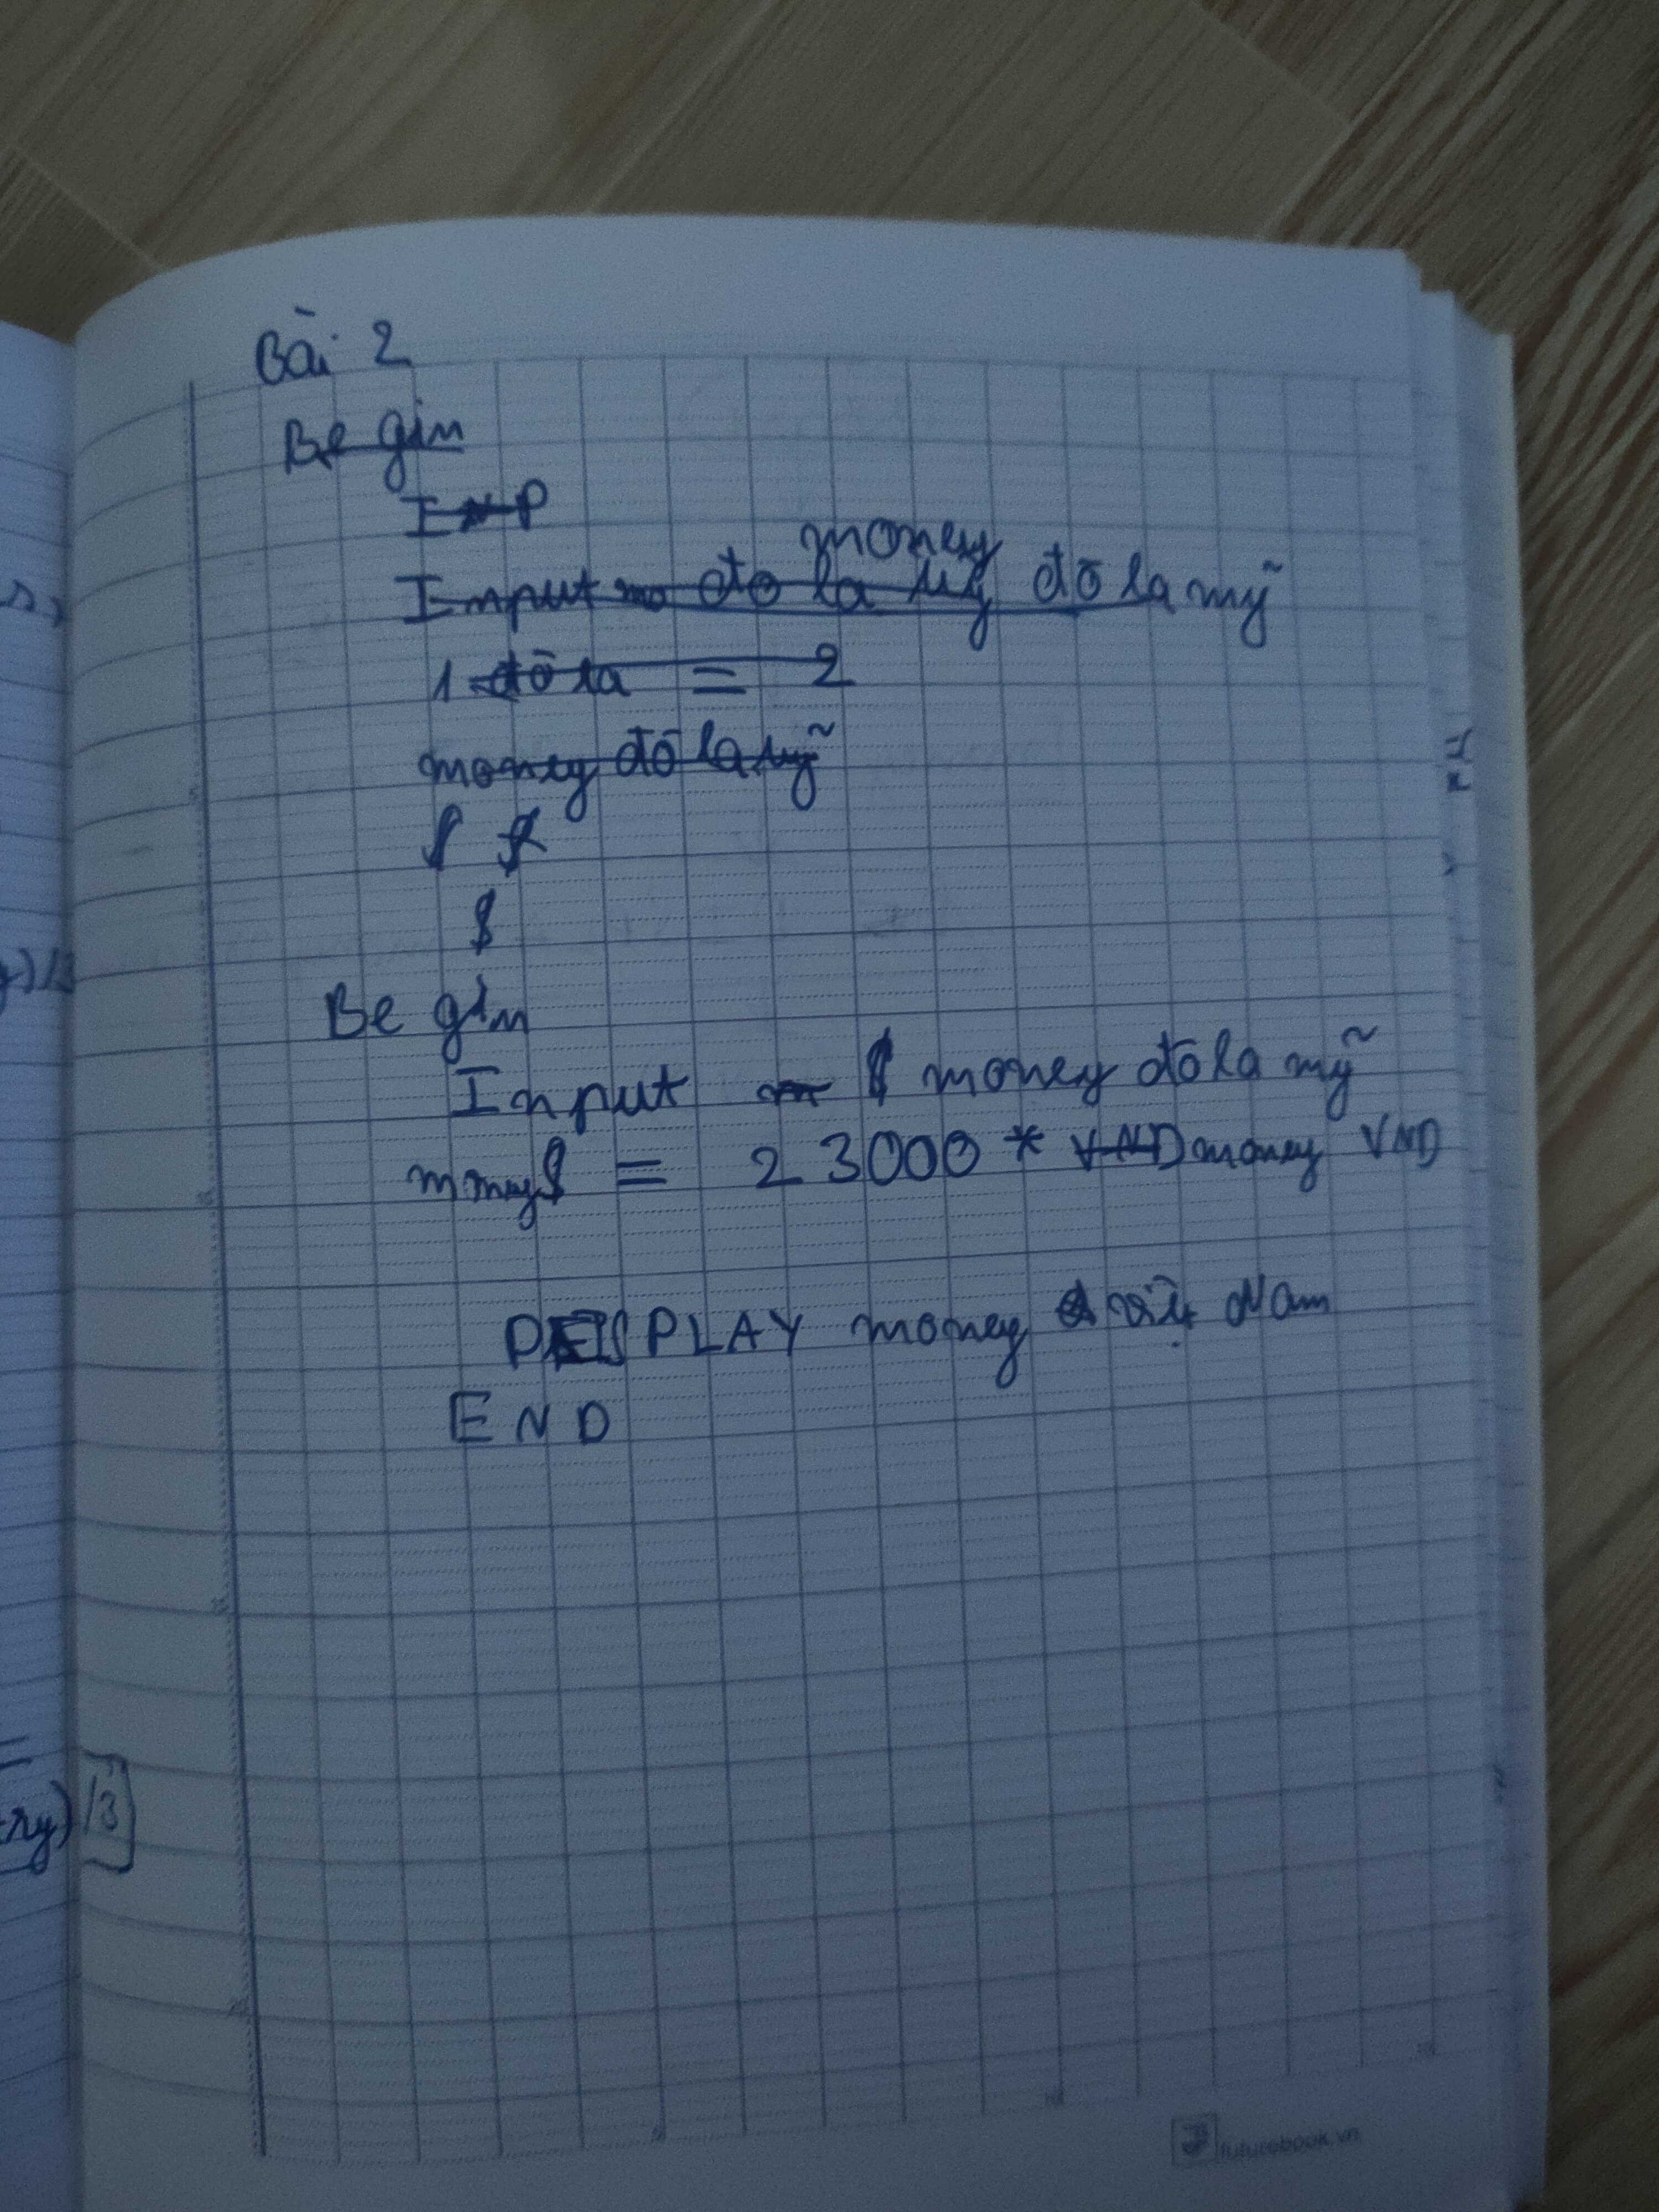 Bài 2
Begin
INP
money
Input đo la mỹ đô la mỹ
1 đô la = 2
money đô la mỹ
$
$
Begin
Input $ money đô la mỹ
money$ = 23000 * VND money VND
DISPLAY money việt Nam
END
/3
futurebook.vn